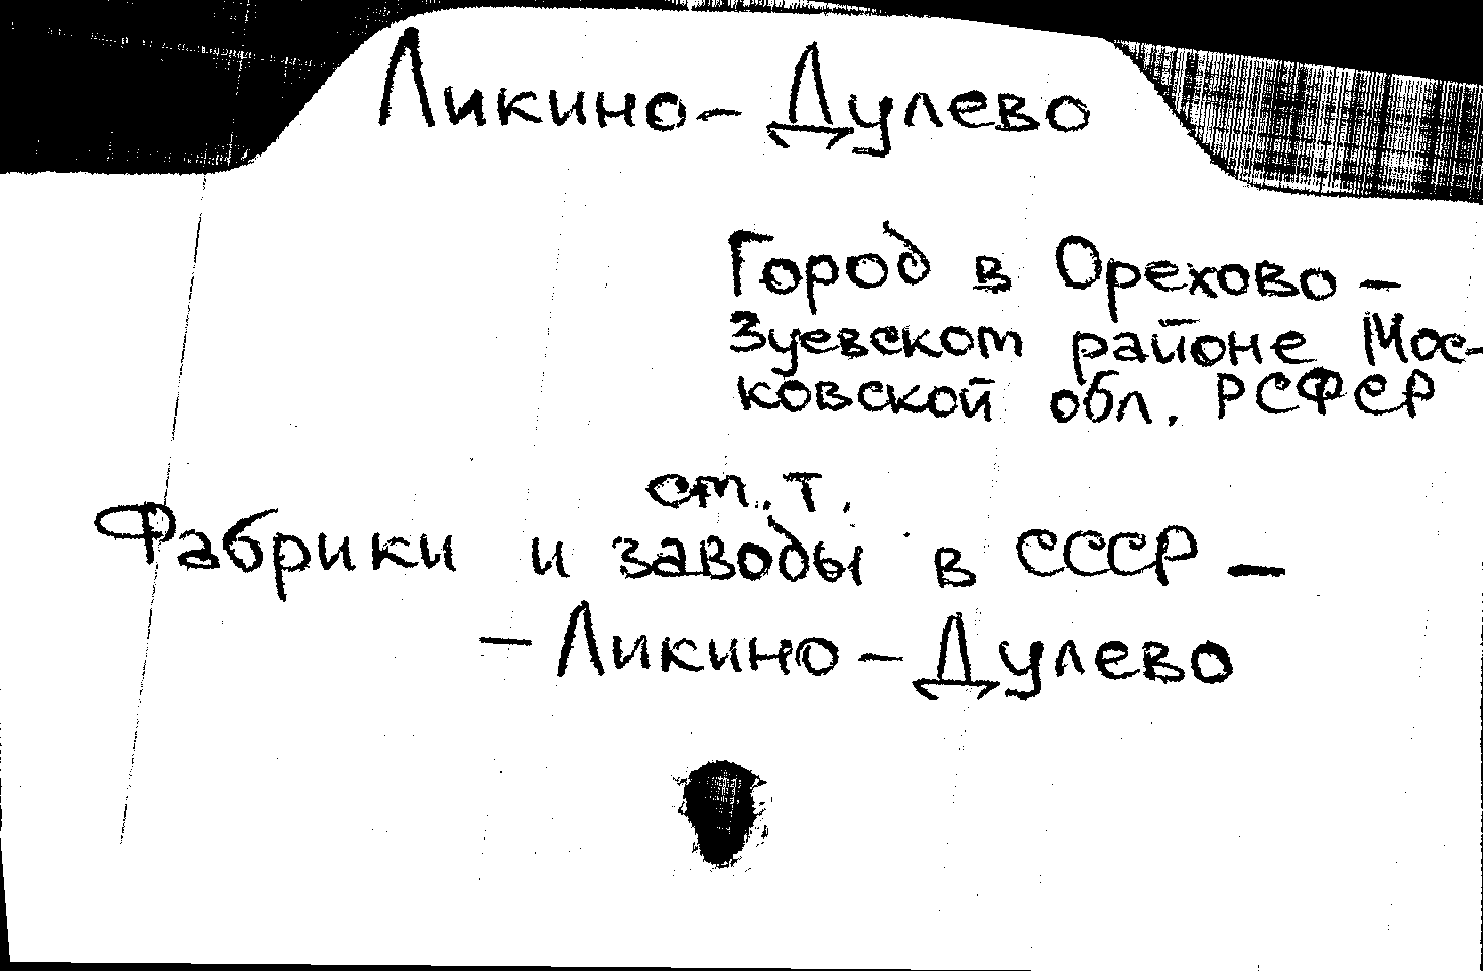 Ликино-Дулево
Город в Орехово-
Зуевском районе Мос-
ковской обл. РСФСР
ст. т.
Фабрики и заводы в СССР -
- Ликино-Дулево